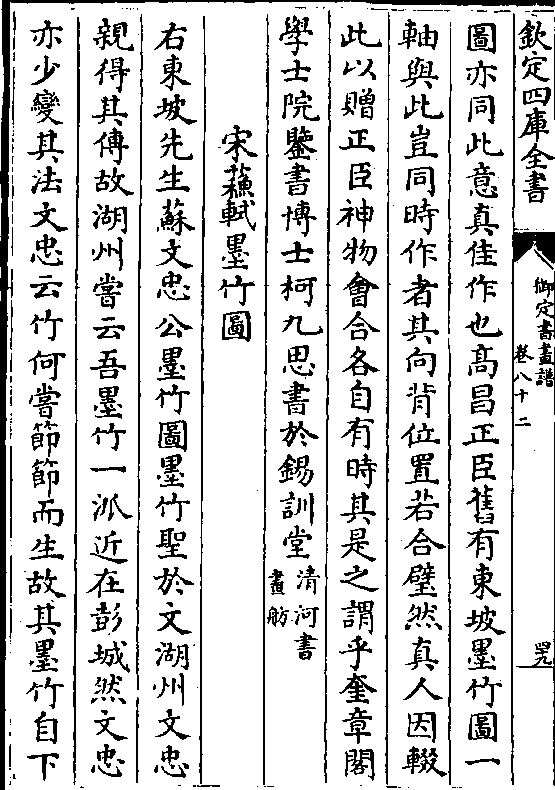 欽定四庫全書
御定書畫譜
卷八十二
四九
圖亦同此意真佳作也高昌正臣舊有東坡墨竹圖一
軸與此豈同時作者其向背位置若合璧然真人因輟
此以贈正臣神物會合各自有時其是之謂乎奎章閣
學士院鑒書博士柯九思書於錫訓堂清河書
畫舫
宋蘇軾墨竹圖
右東坡先生蘇文忠公墨竹圖墨竹聖於文湖州文忠
親得其傳故湖州嘗云吾墨竹一派近在彭城然文忠
亦少變其法文忠云竹何嘗節節而生故其墨竹自下